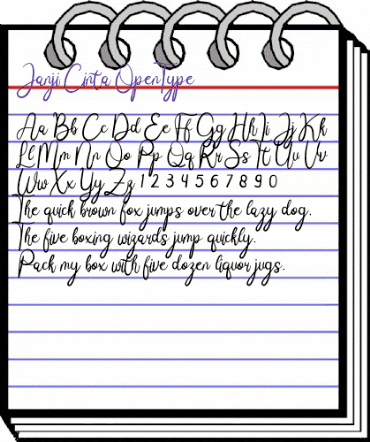 Janji Cinta OpenType
Aa Bb Cc Dd Ee Ff Gg Hh Ii Jj Kk
Ll Mm Nn Oo Pp Qq Rr Ss Tt Uu Vv
Ww Xx Yy Zz 1 2 3 4 5 6 7 8 9 0
The quick brown fox jumps over the lazy dog.
The five boxing wizards jump quickly.
Pack my box with five dozen liquor jugs.